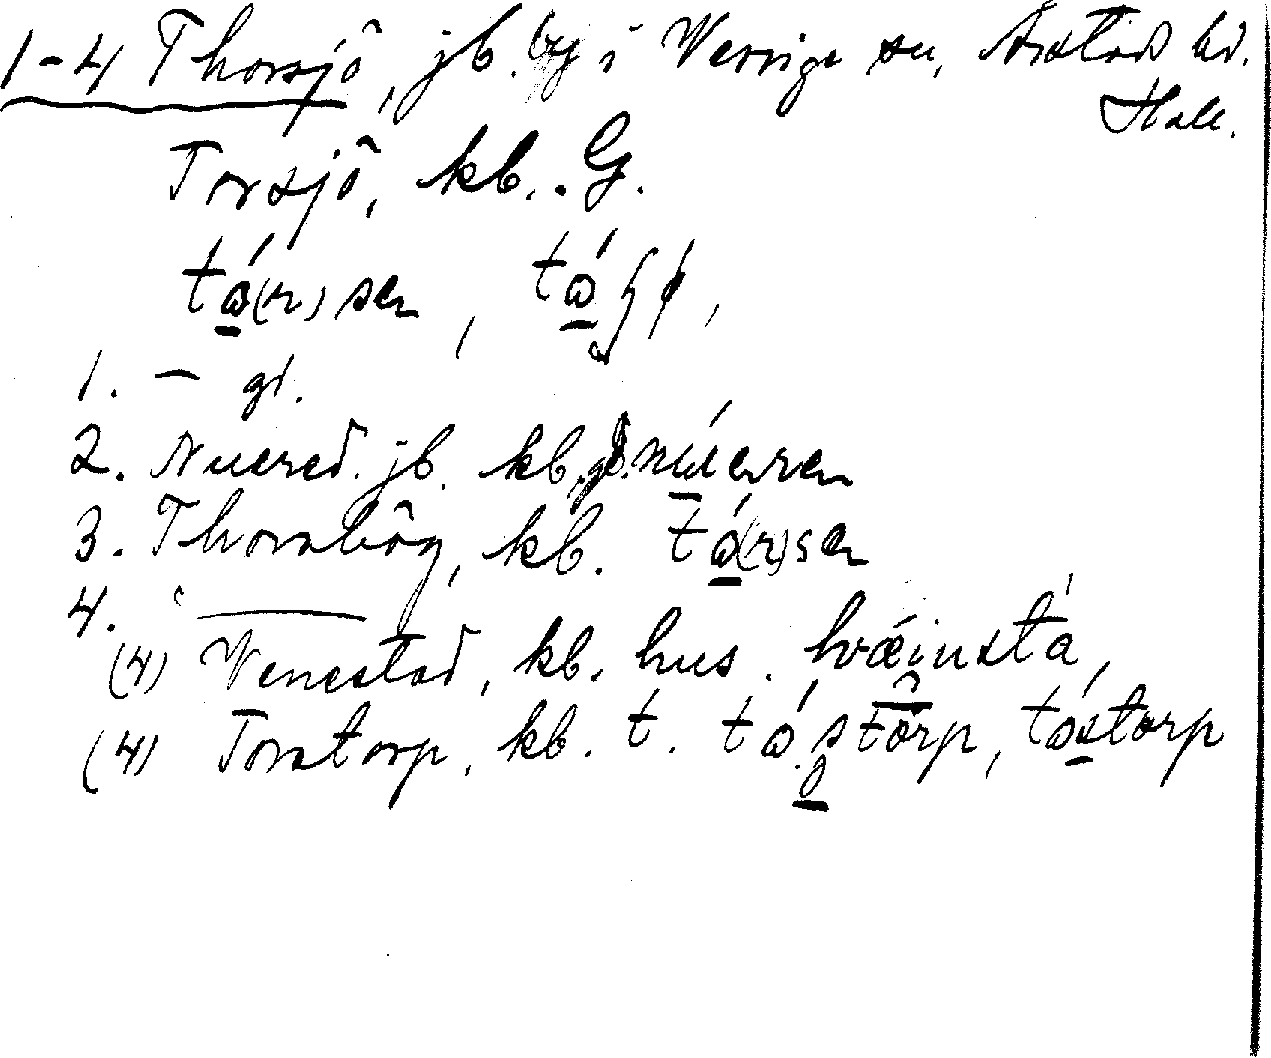 1-4 Thorsjö, jb. by i Vessige sn, Årstads hd.
Hall.
Torsjö, kb. G.
tá(r)sen,
1. — gl.
2. Nuered. jb. kb. núeren
3. Thornbög, kb. tá(r)sen
4.
(4) Venestad, kb. hus. hvæinsta,
(4) Torstorp, kb. t. tástorp, tåstorp